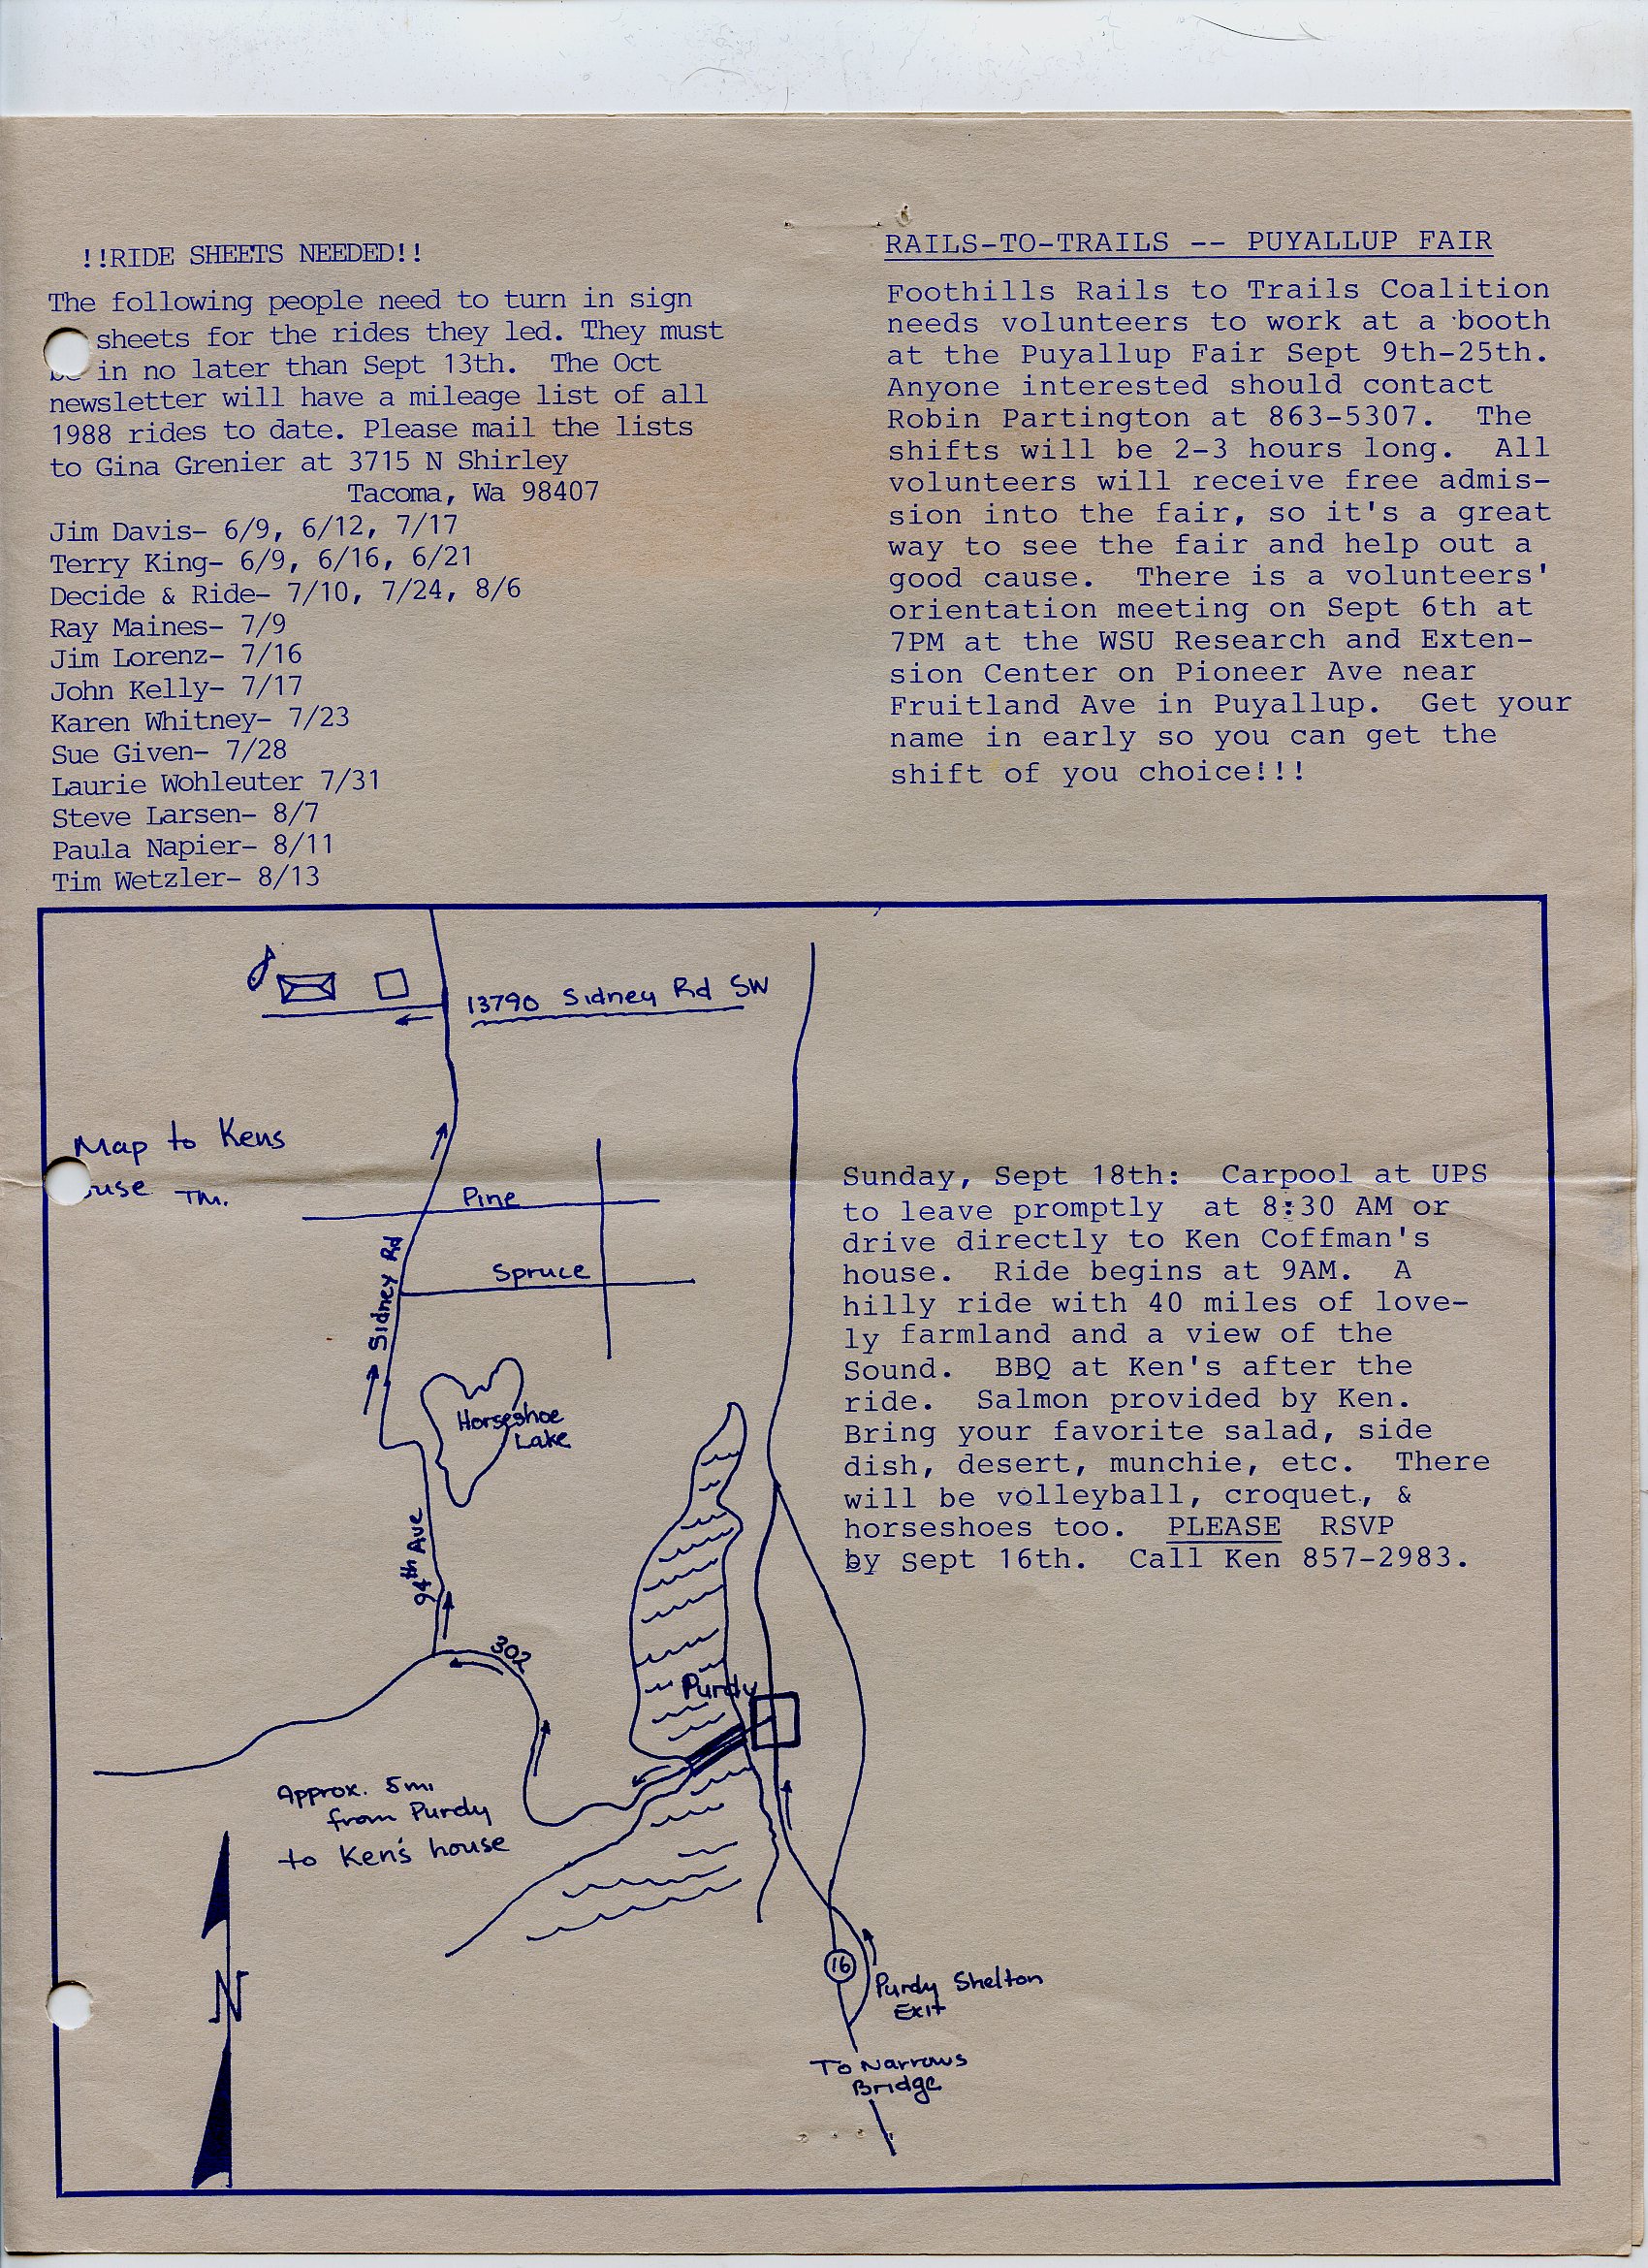 !!RIDE SHEETS NEEDED!!
The following people need to turn in sign
sheets for the rides they led. They must
in no later than Sept 13th. The Oct
newsletter will have a mileage list of all
1988 rides to date. Please mail the lists
to Gina Grenier at 3715 N Shirley
Tacoma, Wa 98407
Jim Davis- 6/9, 6/12, 7/17
Terry King- 6/9, 6/16, 6/21
Decide & Ride- 7/10, 7/24, 8/6
Ray Maines- 7/9
Jim Lorenz- 7/16
John Kelly- 7/17
Karen Whitney- 7/23
Sue Given- 7/28
Laurie Wohleuter 7/31
Steve Larsen- 8/7
Paula Napier- 8/11
Tim Wetzler- 8/13
RAILS-TO-TRAILS -- PUYALLUP FAIR
Foothills Rails to Trails Coalition
needs volunteers to work at a booth
at the Puyallup Fair Sept 9th-25th.
Anyone interested should contact
Robin Partington at 863-5307. The
shifts will be 2-3 hours long. All
volunteers will receive free admis-
sion into the fair, so it's a great
way to see the fair and help out a
good cause. There is a volunteers'
orientation meeting on Sept 6th at
7PM at the WSU Research and Exten-
sion Center on Pioneer Ave near
Fruitland Ave in Puyallup. Get your
name in early so you can get the
shift of you choice!!!
13790 Sidney Rd SW
Map to Kens
TM.
Pine
Spruce
Sidney Rd
Horseshoe
Lake
94th Ave
302
Purdy
Approx. 5mi
from Purdy
to Ken's house
N
16
Purdy Shelton
Exit
To Narrows
Bridge
Sunday, Sept 18th: Carpool at UPS
to leave promptly at 8:30 AM or
drive directly to Ken Coffman's
house. Ride begins at 9AM. A
hilly ride with 40 miles of love-
ly farmland and a view of the
Sound. BBQ at Ken's after the
ride. Salmon provided by Ken.
Bring your favorite salad, side
dish, desert, munchie, etc. There
will be volleyball, croquet, &
horseshoes too. PLEASE RSVP
by Sept 16th. Call Ken 857-2983.